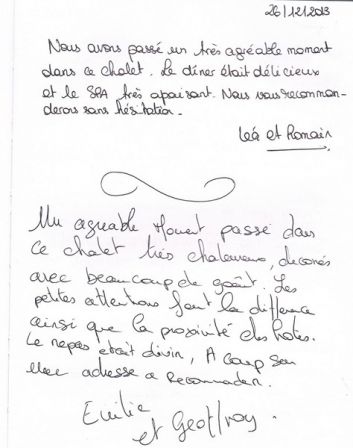 26/12/2013
Nous avons passé un très agréable moment
dans ce chalet. Le dîner était délicieux
et le SPA très apaisant. Nous vous recomman-
derons sans hésitation.
Léa et Romain
Un agréable Moment passé dans
ce chalet très chaleureux, décorés
avec beaucoup de goût. Les
petites attentions font la différence
ainsi que la proximité des hôtes.
Le repas était divin, A coup sûr
une adresse a Recommander.
Emilie
et Geoffroy.